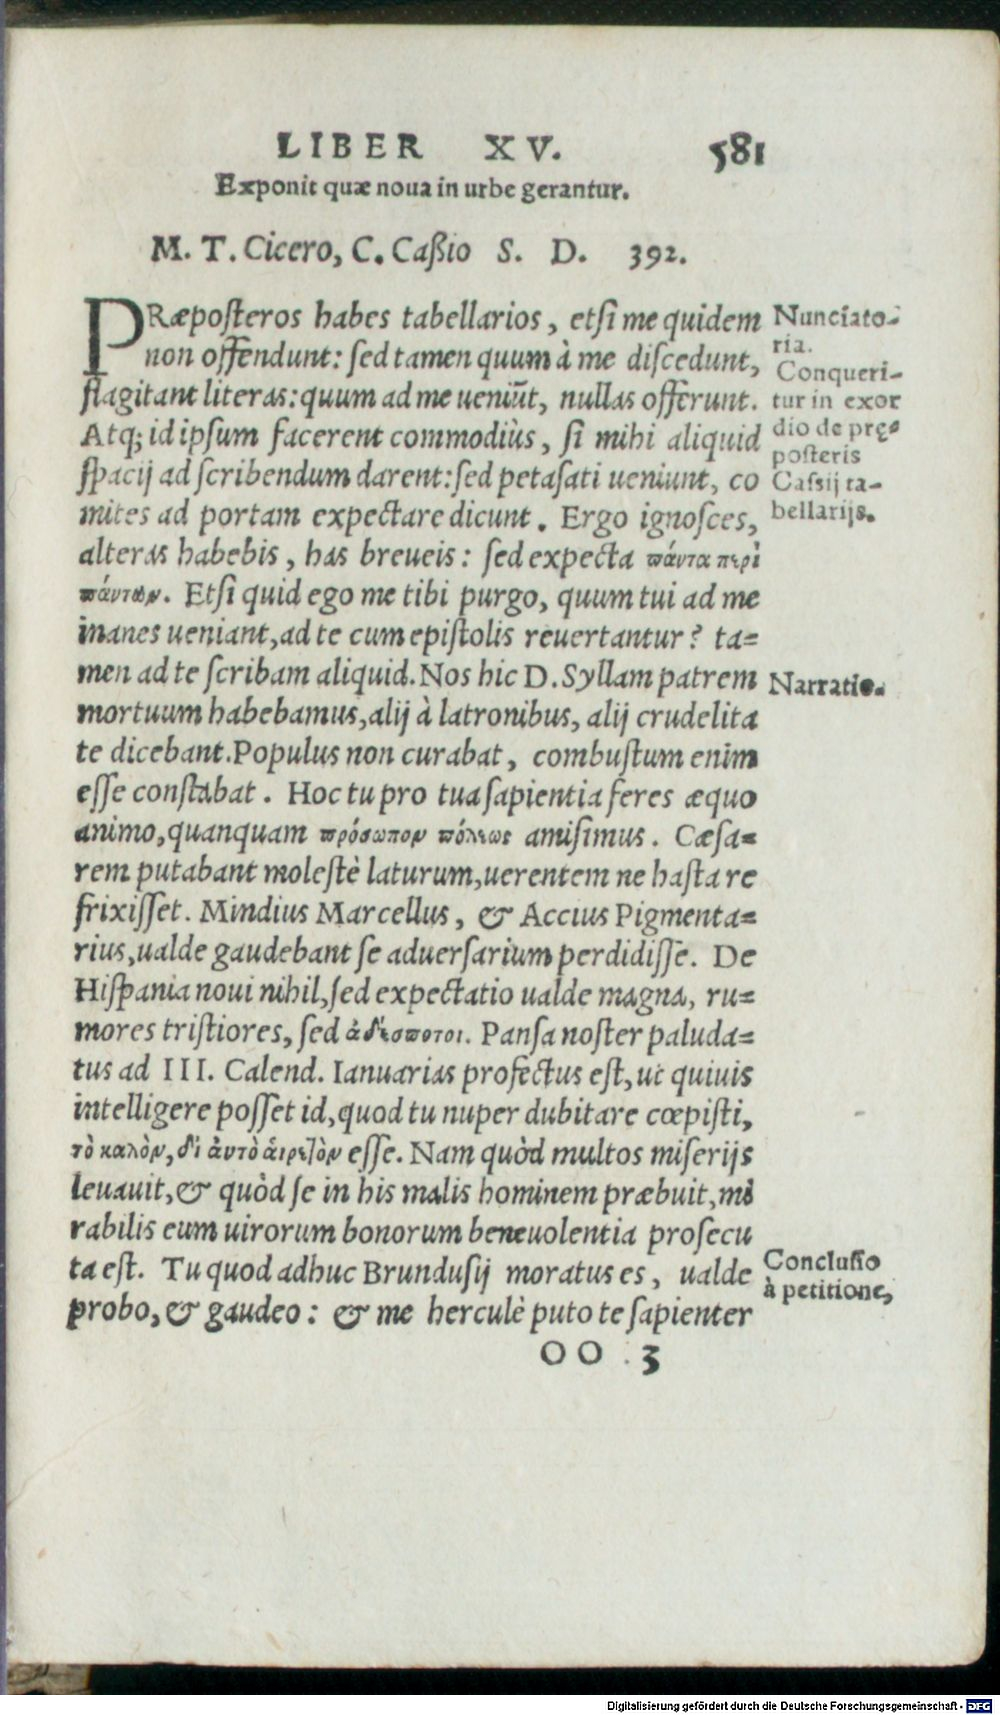 LIBER XV. 581
Exponit quæ noua in urbe gerantur.
M. T. Cicero, C. Caßio S. D. 392.
PRæposteros habes tabellarios, etsi me quidem
non offendunt: sed tamen quum à me discedunt,
flagitant literas: quum ad me ueniūt, nullas offerunt.
Atq; id ipsum facerent commodiùs, si mihi aliquid
spacij ad scribendum darent: sed petasati ueniunt, co
mites ad portam expectare dicunt. Ergo ignosces,
alteras habebis, has breueis: sed expecta πάντα περὶ
πάντων. Etsi quid ego me tibi purgo, quum tui ad me
inanes ueniant, ad te cum epistolis reuertantur? ta=
men ad te scribam aliquid. Nos hic D. Syllam patrem
mortuum habebamus, alij à latronibus, alij crudelita
te dicebant. Populus non curabat, combustum enim
esse constabat. Hoc tu pro tua sapientia feres æquo
animo, quanquam πρόσωπον πόλεως amisimus. Cæsa=
rem putabant molestè laturum, uerentem ne hasta re
frixisset. Mindius Marcellus, & Accius Pigmenta=
rius, ualde gaudebant se aduersarium perdidisse. De
Hispania noui nihil, sed expectatio ualde magna, ru=
mores tristiores, sed ἀδέσποτοι. Pansa noster paluda=
tus ad III. Calend. Ianuarias profectus est, ut quiuis
intelligere posset id, quod tu nuper dubitare cœpisti,
τὸ καλὸν, δἰ ἀυτὸ ἁιρετὸν esse. Nam quòd multos miserijs
leuauit, & quòd se in his malis hominem præbuit, mi
rabilis eum uirorum bonorum beneuolentia prosecu
ta est. Tu quod adhuc Brundusij moratus es, ualde
probo, & gaudeo: & me herculè puto te sapienter
OO 3
Nunciato-
ria.
Conqueri-
tur in exor
dio de præ=
posteris
Cassij ta-
bellarijs.
Narratio.
Conclusio
à petitione,
Digitalisierung gefördert durch die Deutsche Forschungsgemeinschaft - DFG